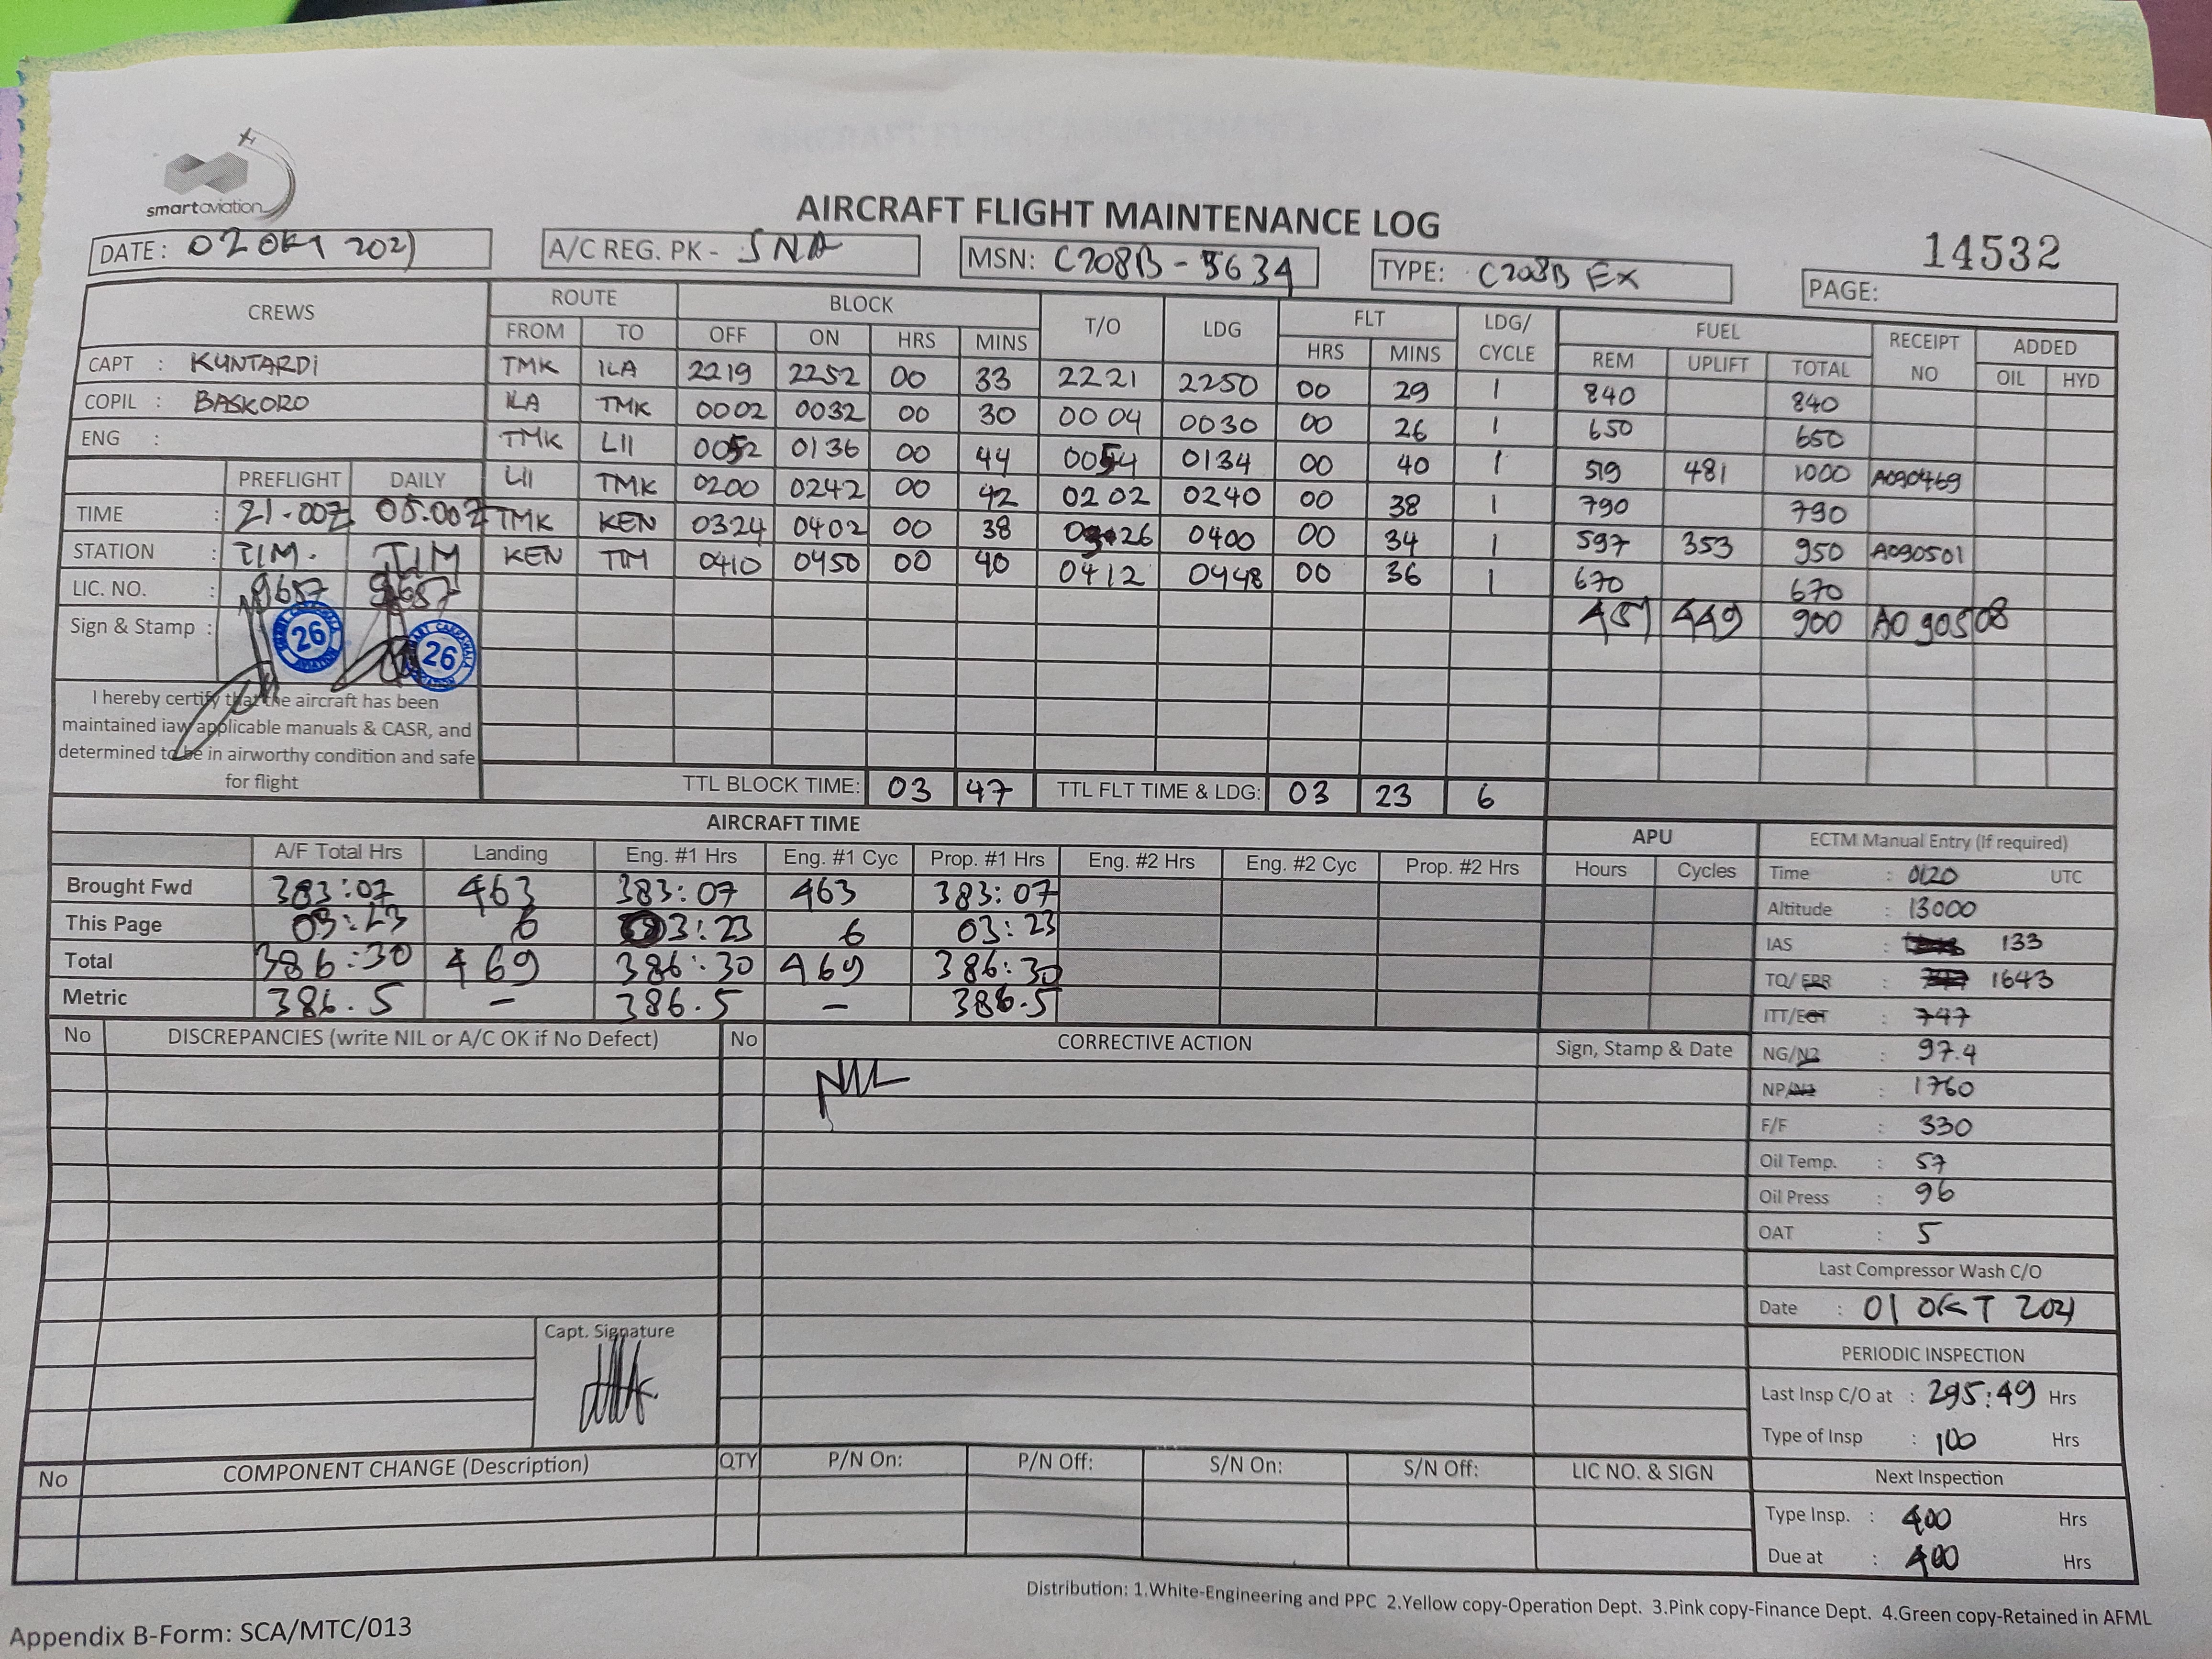 smartaviation
AIRCRAFT FLIGHT MAINTENANCE LOG
14532
DATE: 02 OKT 2021
A/C REG. PK - SNA
MSN: C208B - 5634
TYPE: C208B EX
PAGE:
CREWS ROUTE BLOCK T/O LDG FLT LDG/ CYCLE FUEL RECEIPT NO ADDED
FROM TO OFF ON HRS MINS HRS MINS REM UPLIFT TOTAL OIL HYD
CAPT : KUNTARDI TMK ILA 2219 2252 00 33 2221 2250 00 29 1 840 840
COPIL : BASKORO ILA TMK 0002 0032 00 30 0004 0030 00 26 1 650 650
ENG : TMK LII 0052 0136 00 44 0054 0134 00 40 1 519 481 1000 A090469
PREFLIGHT DAILY LII TMK 0200 0242 00 42 0202 0240 00 38 1 790 790
TIME : 21.00Z 05.00Z TMK KEN 0324 0402 00 38 0326 0400 00 34 1 597 353 950 A090501
STATION : TIM. TIM KEN TIM 0410 0450 00 40 0412 0448 00 36 1 670 670
LIC. NO. : 9687 9687 451 449 900 A090508
Sign & Stamp : 26 26
I hereby certify that the aircraft has been
maintained iaw applicable manuals & CASR, and
determined to be in airworthy condition and safe
for flight
TTL BLOCK TIME: 03 47 TTL FLT TIME & LDG: 03 23 6
AIRCRAFT TIME APU ECTM Manual Entry (If required)
A/F Total Hrs Landing Eng. #1 Hrs Eng. #1 Cyc Prop. #1 Hrs Eng. #2 Hrs Eng. #2 Cyc Prop. #2 Hrs Hours Cycles
Brought Fwd 383:07 463 383:07 463 383:07
This Page 03:23 6 03:23 6 03:23
Total 386:30 469 386:30 469 386:30
Metric 386.5 – 386.5 – 386.5
Time : 0120 UTC
Altitude : 13000
IAS : 133
TQ/EPR : 1643
ITT/EGT : 747
NG/N2 : 97.4
NP/N1 : 1760
F/F : 330
Oil Temp. : 57
Oil Press : 96
OAT : 5
Last Compressor Wash C/O
Date : 01 OKT 2021
PERIODIC INSPECTION
Last Insp C/O at : 295:49 Hrs
Type of Insp : 100 Hrs
Next Inspection
Type Insp. : 400 Hrs
Due at : 400 Hrs
No DISCREPANCIES (write NIL or A/C OK if No Defect) No CORRECTIVE ACTION Sign, Stamp & Date
NIL
Capt. Signature
No COMPONENT CHANGE (Description) QTY P/N On: P/N Off: S/N On: S/N Off: LIC NO. & SIGN
Distribution: 1.White-Engineering and PPC 2.Yellow copy-Operation Dept. 3.Pink copy-Finance Dept. 4.Green copy-Retained in AFML
Appendix B-Form: SCA/MTC/013